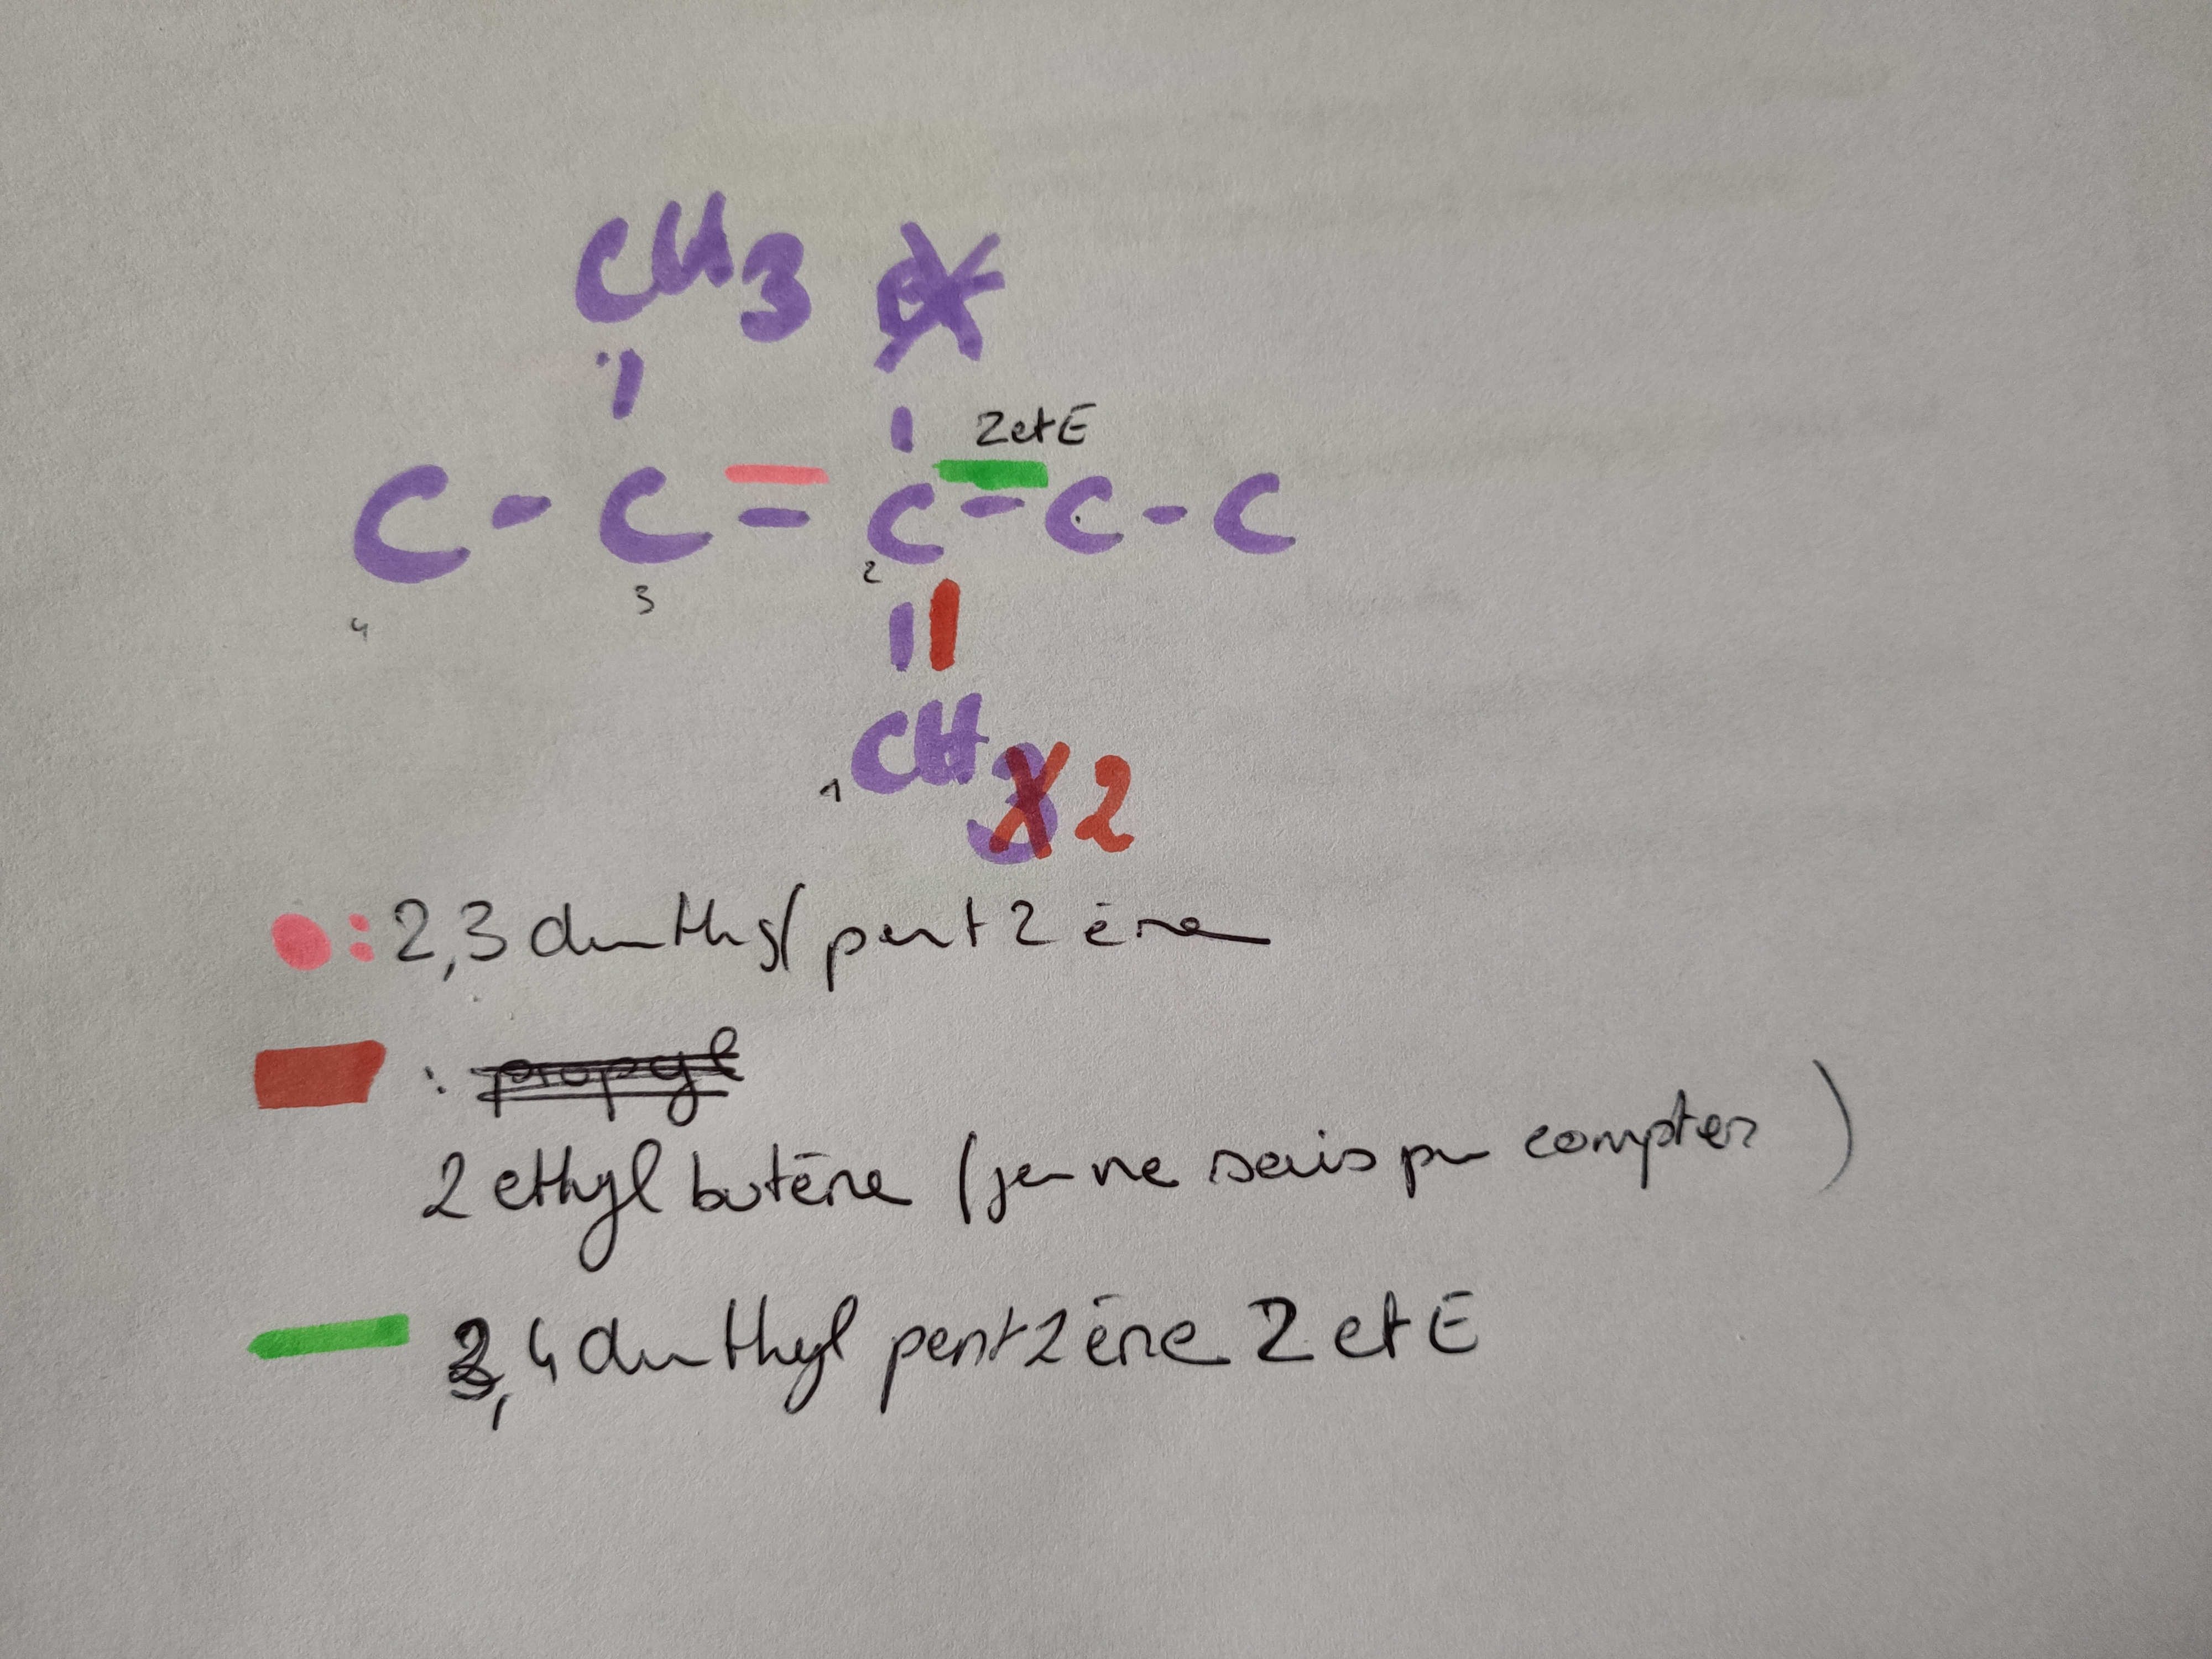 CH3 X
Z et E
C - C = C - C - C
2
3
4
CH3 2
1
: 2,3 dimethyl pent 2 ène
: propyl
2 ethyl butène (je ne sais pas compter)
3,4 dimethyl pent 2 ène Z et E